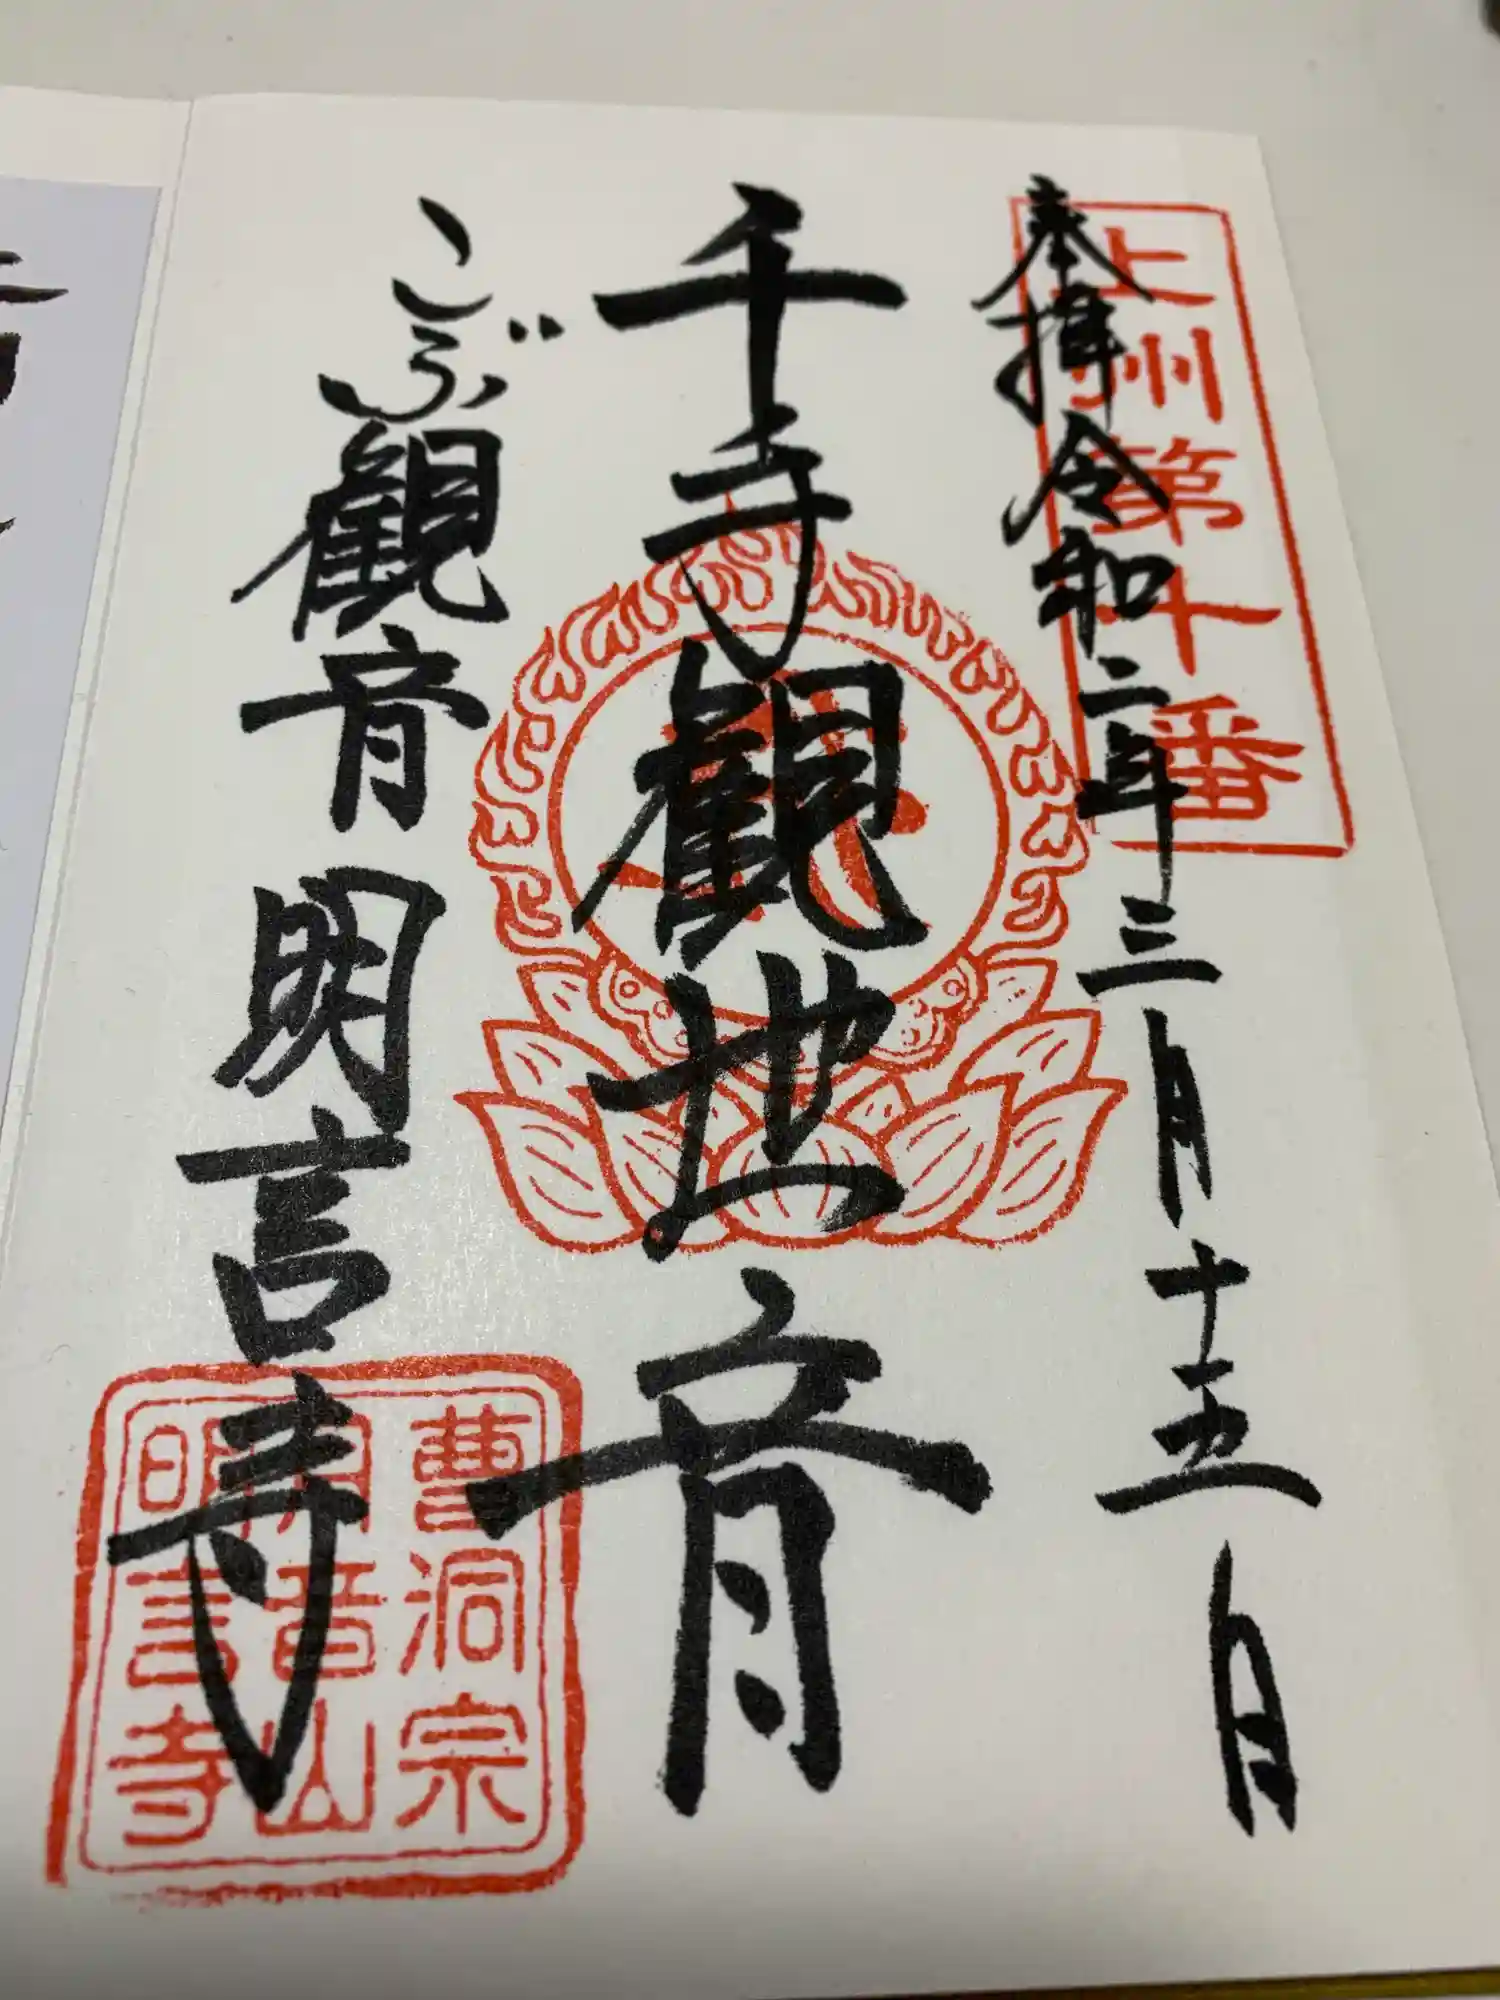 上州第十番
奉拝令和二年三月十五日
千手観世音
こぶ観音明言寺
曹洞宗
観音山
明言寺